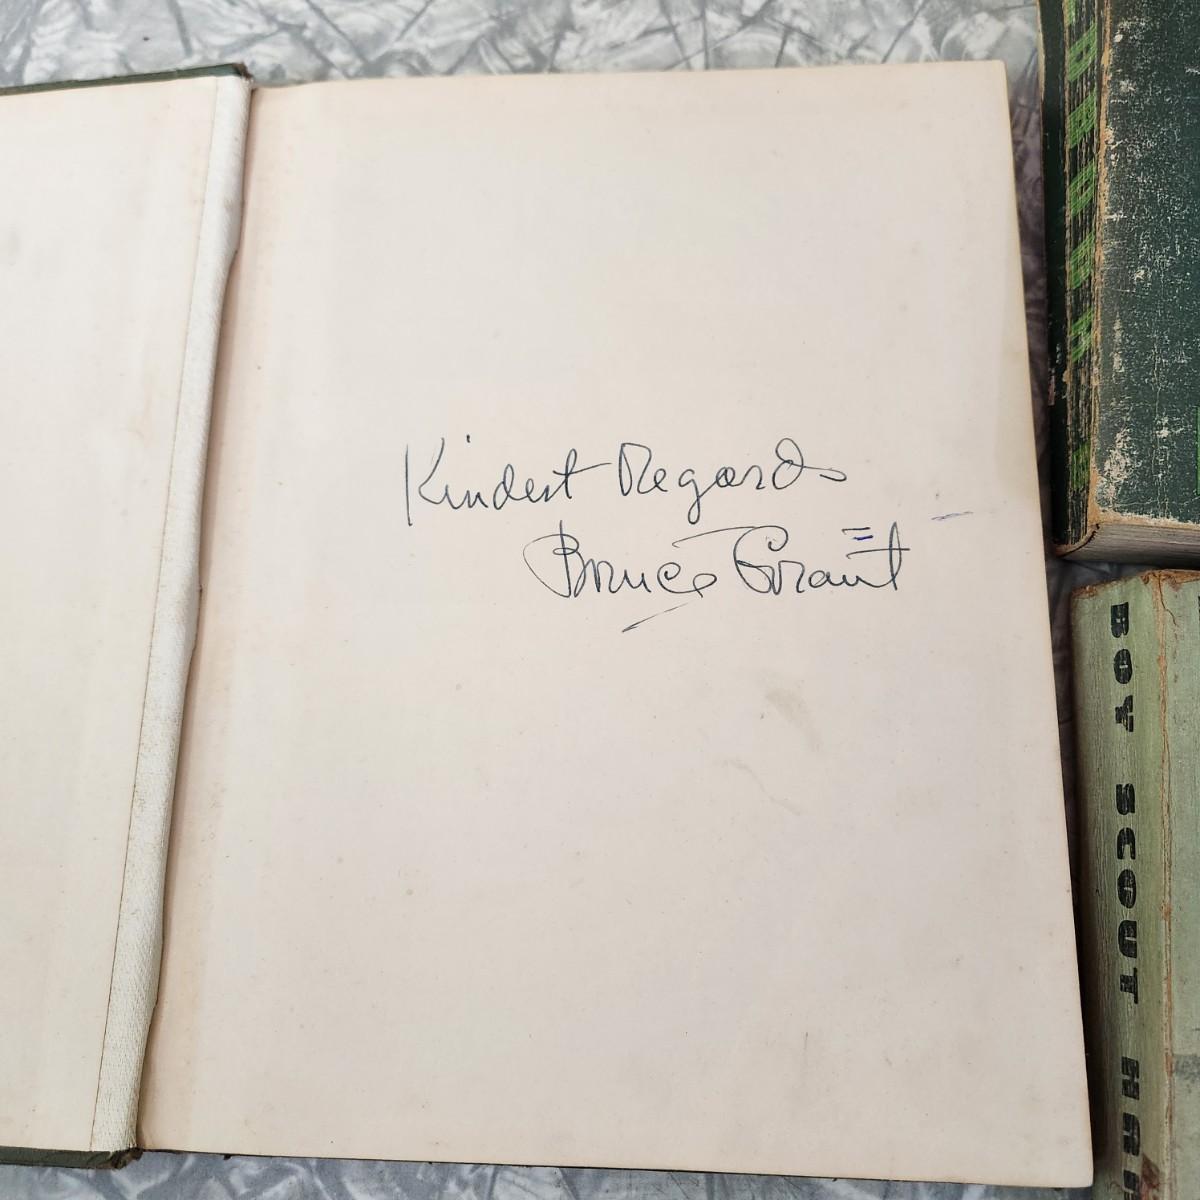 Kindest Regards
Bruce Grant
BOY SCOUT HA